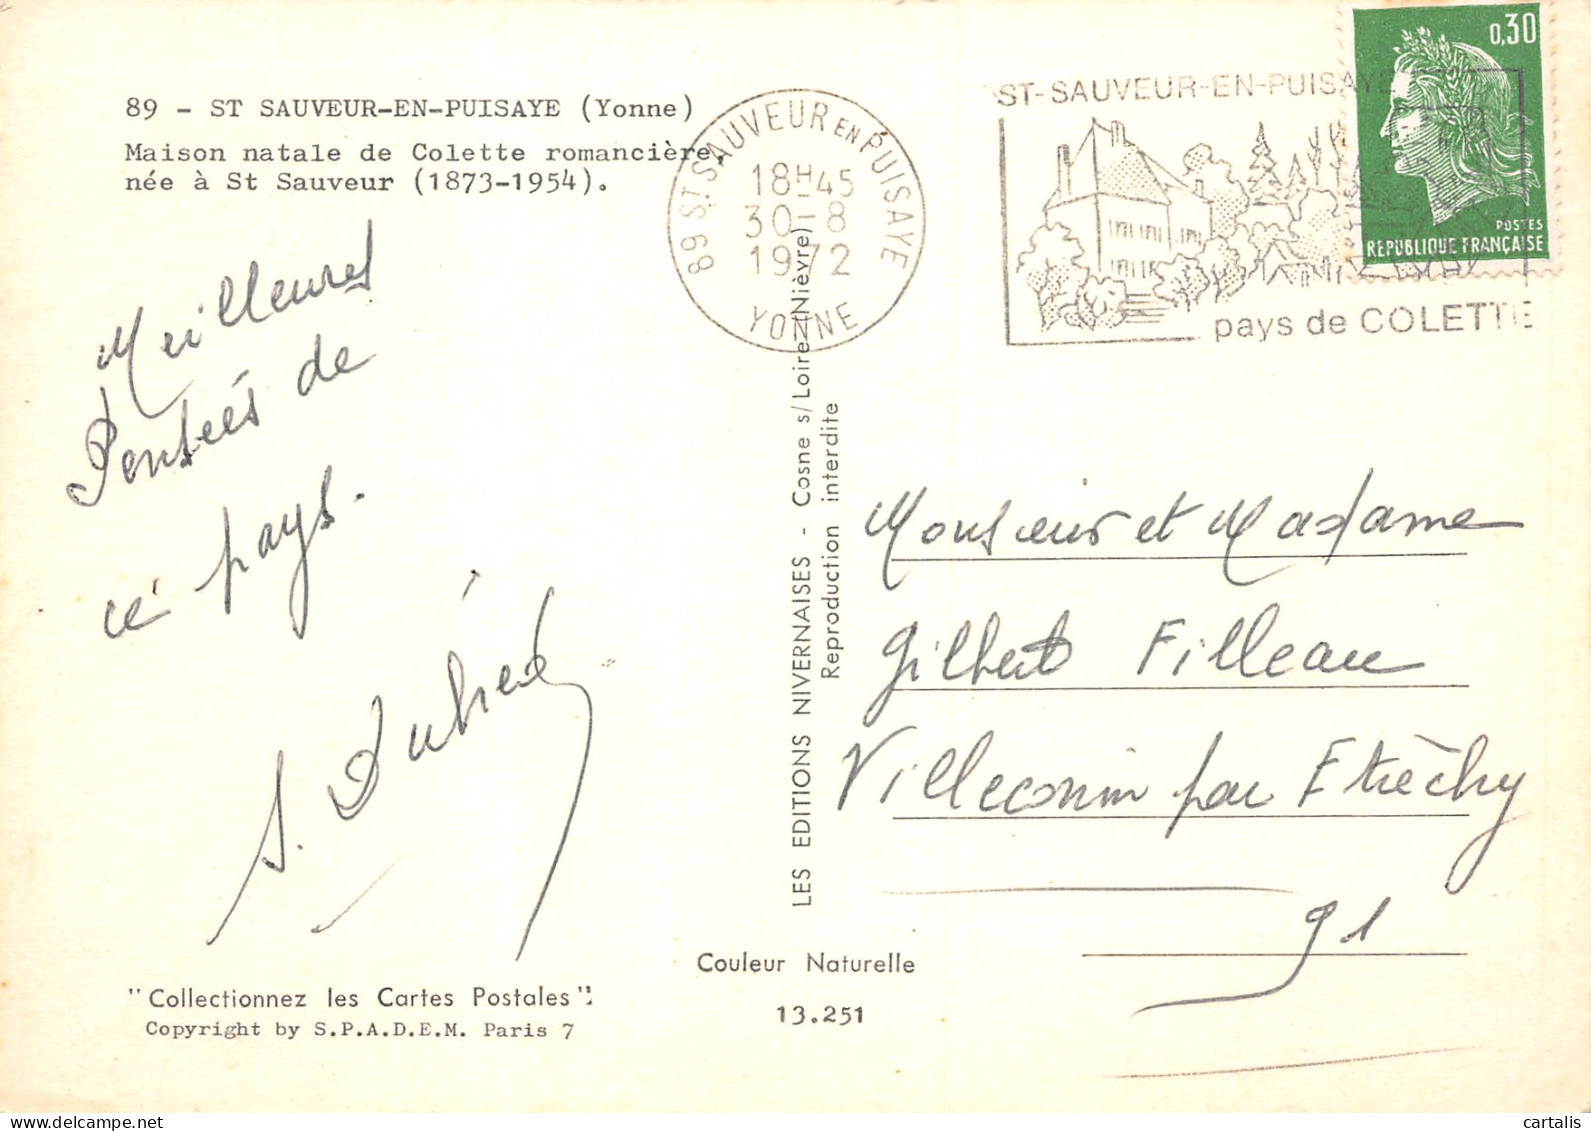 89 - ST SAUVEUR-EN-PUISAYE (Yonne)
Maison natale de Colette romancière,
née à St Sauveur (1873-1954).
89 ST SAUVEUR EN PUISAYE
18H45
30-8
1972
YONNE
ST-SAUVEUR-EN-PUISAYE
pays de COLETTE
0,30
POSTES
REPUBLIQUE FRANÇAISE
Meilleures
Pensées de
ce pays.
LES EDITIONS NIVERNAISES - Cosne s/Loire (Nièvre)
Reproduction interdite
Monsieur et Madame
Gilbert Filleau
Villeconin par Etrèchy
91
Couleur Naturelle
13.251
"Collectionnez les Cartes Postales":
Copyright by S.P.A.D.E.M. Paris 7
cartalis